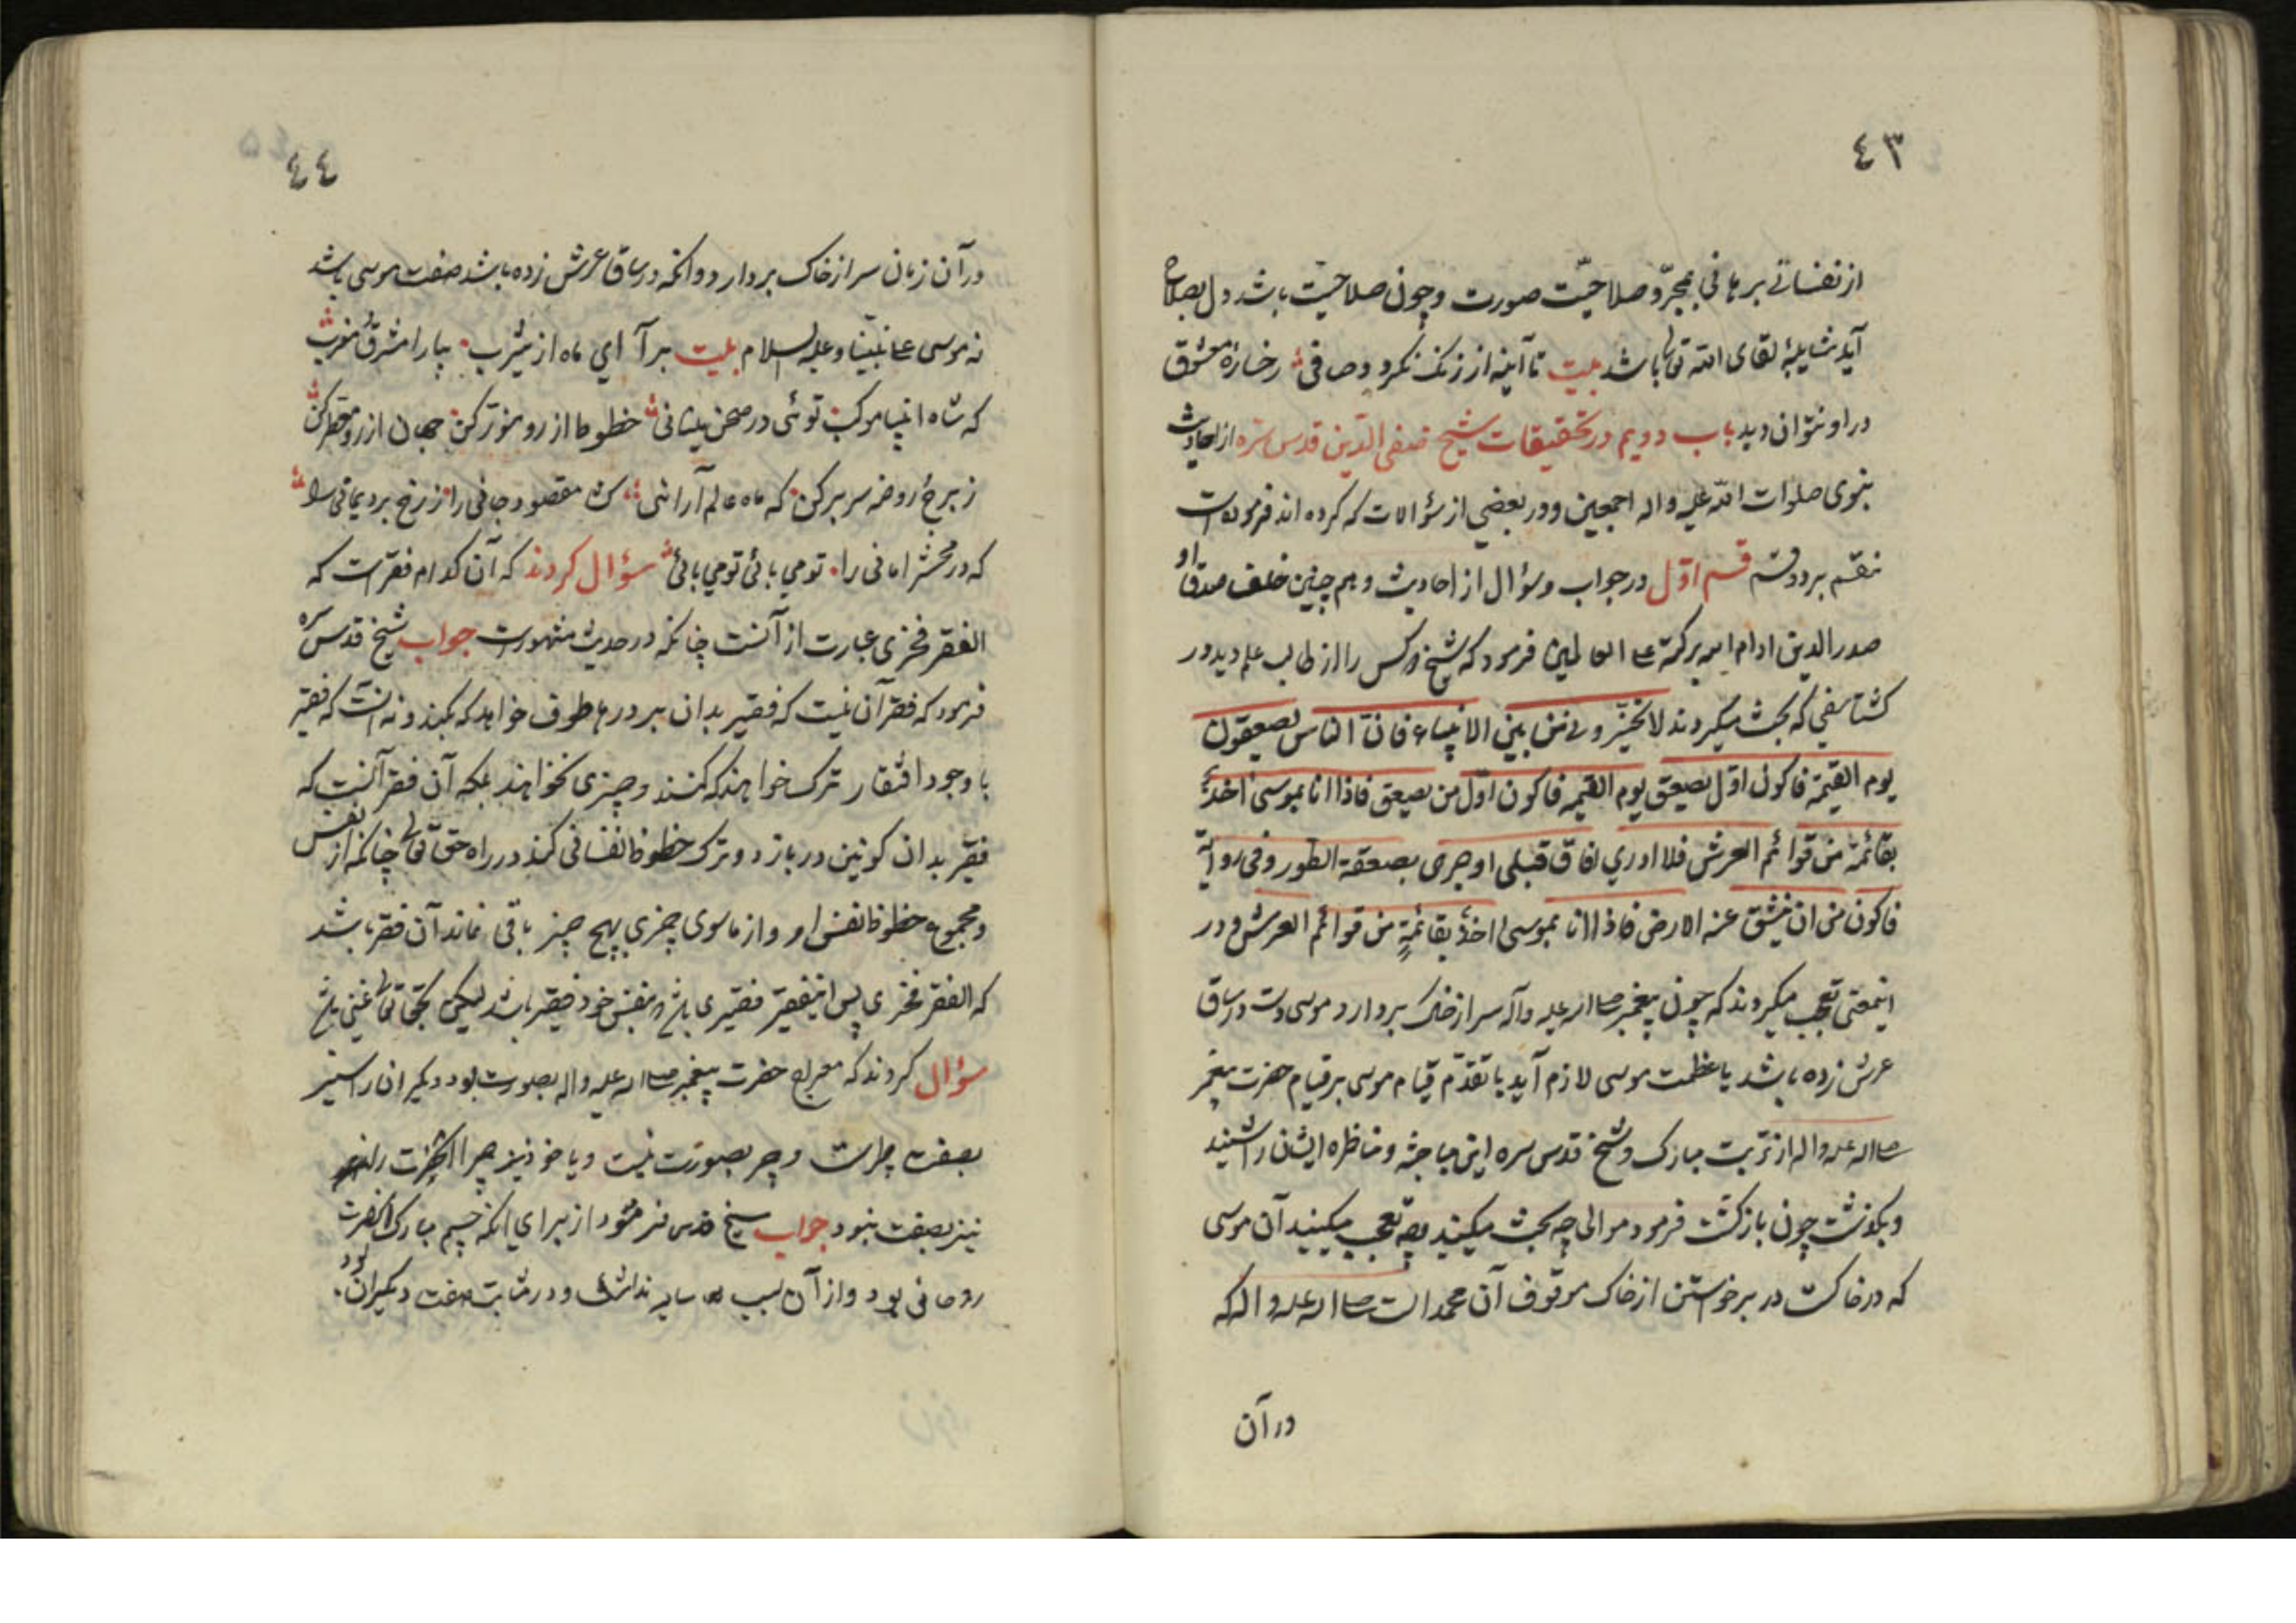 ٤٣
از نفسانی برهانی بمجرّد صلاحیّت صورت و چون صلاحیّت باشد دل بصلاح
آید شایسته لقای الله تعالی باشد بیت تا آینه از زنک نکردد صافی رخساره معشوق
در او نتوان دید باب دویم در تحقیقات شیخ صفی الدّین قدس سرّه از احادیث
نبوی صلوات اللّه علیه واله اجمعین و در بعضی از سؤالات که کرده اند فرموده است
منقسم بر دو قسم قسم اوّل در جواب و سؤال از احادیث و هم چنین خلف صدق او
صدرالدین ادام الله برکته علی العالمین فرمود که شیخ دو کس را از طالب علم دید در
کشتاسفی که بحث میکردند لا تخیّرونی من بین الانبیاء فانّ الناس یصعقون
یوم القیمة فاکون اوّل یصعق یوم القیمه فاکون اوّل من یصیعق فاذا انا بموسی اخذ
بقائمة من قوائم العرش فلا ادری افاق قبلی او جری بصعقة الطور و فی روایة
فاکون من ان ینشق عنه الارض فاذا انا بموسی اخذ بقائمةٍ من قوائم العرش و در
اینمعنی تعجب میکردند که چون پیغمبر صلی الله علیه وآله سر از خاک بردارد موسی دست در ساق
عرش زده باشد یا عظمت موسی لازم آید یا تقدّم قیام موسی بر قیام حضرت پیغمبر
صلی الله علیه واله از تربت مبارک و شیخ قدس سره این مباحثه و مناظره ایشان را شنید
و بکذشت چون بازکشت فرمود موالی چه بحث میکنید و چه تعجب میکنید آن موسی
که در خاکست در برخواستن از خاک موقوف آن محمد است صلی الله علیه واله که
در آن
٤٤
در آن زمان سر از خاک بردارد و انکه در ساق عرش زده باشد صفت موسی باشد
نه موسی علی نبیّنا وعلیه السلام بیت برآ ای ماه از یثرب بیارا مشرق و مغرب
که شاه انبیا موکب توئی در صحن پیشانی خطوط از رو منوّر کن جهان از رو معطر کن
ز برج روضه سر بر کن که ماه عالم آرائی مقصود جانی را ز رخ بردیمانی را
که در محشر امانی را تو می بائی تو می بائی سؤال کردند که آن کدام فقر است که
الفقر فخری عبارت از آنست چنانکه در حدیث مشهور است جواب شیخ قدس سره
فرمود که فقر آن نیست که فقیر بدان بر درها طوف خواهد که بکند و نه آنست که فقیر
با وجود افتقار ترک خواهند که کنند و چیزی نخواهند بلکه آن فقر آنست که
فقیر بدان کونین در بازد و ترک حظوظ نفسانی کند در راه حقّ تعالی چنانکه از نفس
و مجموع حظوظ نفس او و از ماسوی چیزی بهیچ چیز باقی نماند آن فقر باشد
که الفقر فخری پس اینفقیر فقیری باشد و بنفس خود فقیر باشد لیکن بحق تعالی غنی باشد
سؤال کردند که معراج حضرت پیغمبر صلی الله علیه واله بصورت بود دیکران را سیر
بصفت چراست و چرا بصورت نیست و یا خود نیز چرا آنحضرت را
نیز بصفت نبود جواب شیخ قدس سره فرمود از برای انکه جسم مبارک آنحضرت
روحانی بود و از آن سبب سایه نداشت و در مثابت صفت دیکران بود